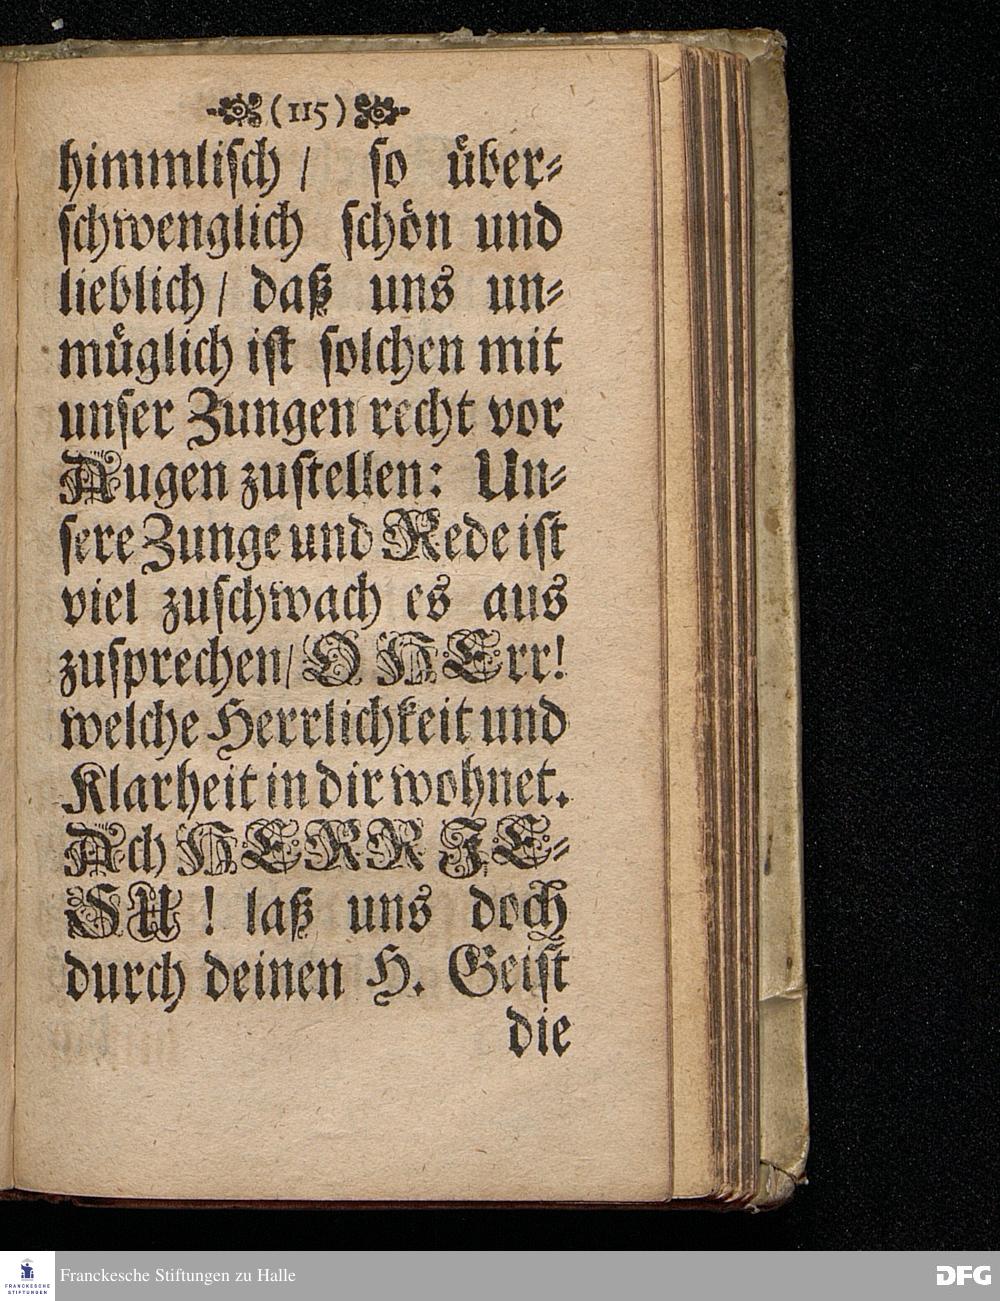 (115)
himmlisch / so uͤber⸗
schwenglich schoͤn und
lieblich / daß uns un⸗
muͤglich ist solchen mit
unser Zungen recht vor
Augen zustellen: Un⸗
sere Zunge und Rede ist
viel zuschwach es aus
zusprechen / O HErr!
welche Herrlichkeit und
Klarheit in dir wohnet.
Ach HERR JE⸗
SU! laß uns doch
durch deinen H. Geist
die
FRANCKESCHE
STIFTUNGEN
Franckesche Stiftungen zu Halle
DFG